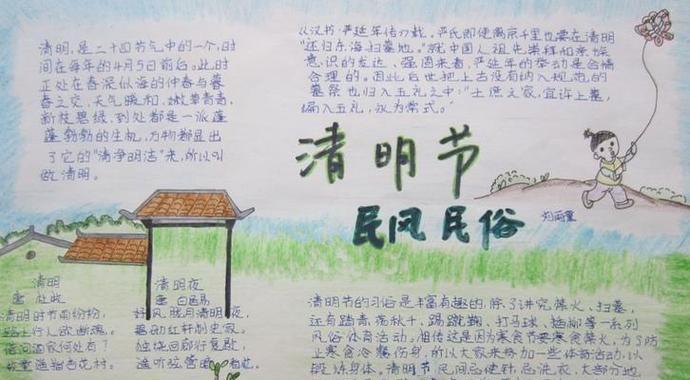 清明,是二十四节气中的一个,时
间在每年的4月5日前后。此时
正处在春深似海的仲春与暮
春之交,天气暖和,嫩草青青,
新枝碧绿,到处都是一派蓬
蓬勃勃的生机,万物都显出
了它的"清净明洁"来,所以叫
做清明。
从汉书·严延年传记载,严氏即使离京千里也要在清明
"还归东海扫墓地。"就中国人祖先崇拜和亲族
意识的发达、强固来看,严延年的举动是合情
合理的。因此后世把上古没有纳入规范的
墓祭也归入五礼之中:"士庶之家,宜许上墓,
编入五礼,永为常式。"
清明节
民风民俗
刘雨
清明
唐 杜牧
清明时节雨纷纷,
路上行人欲断魂。
借问酒家何处有?
牧童遥指杏花村。
清明夜
唐 白居易
好风胧月清明夜,
碧砌红轩刺史家。
独绕回廊行复歇,
遥听弦管暗 花。
清明节的习俗是丰富有趣的,除了讲究禁火、扫墓,
还有踏青、荡秋千、踢蹴鞠、打马球、插柳等一系列
风俗体育活动。相传这是因为寒食节要寒食禁火,为了防
止寒食冷餐伤身,所以大家来参加一些体育活动,以
锻炼身体。清明节,民间忌使针,忌洗衣,大部分地